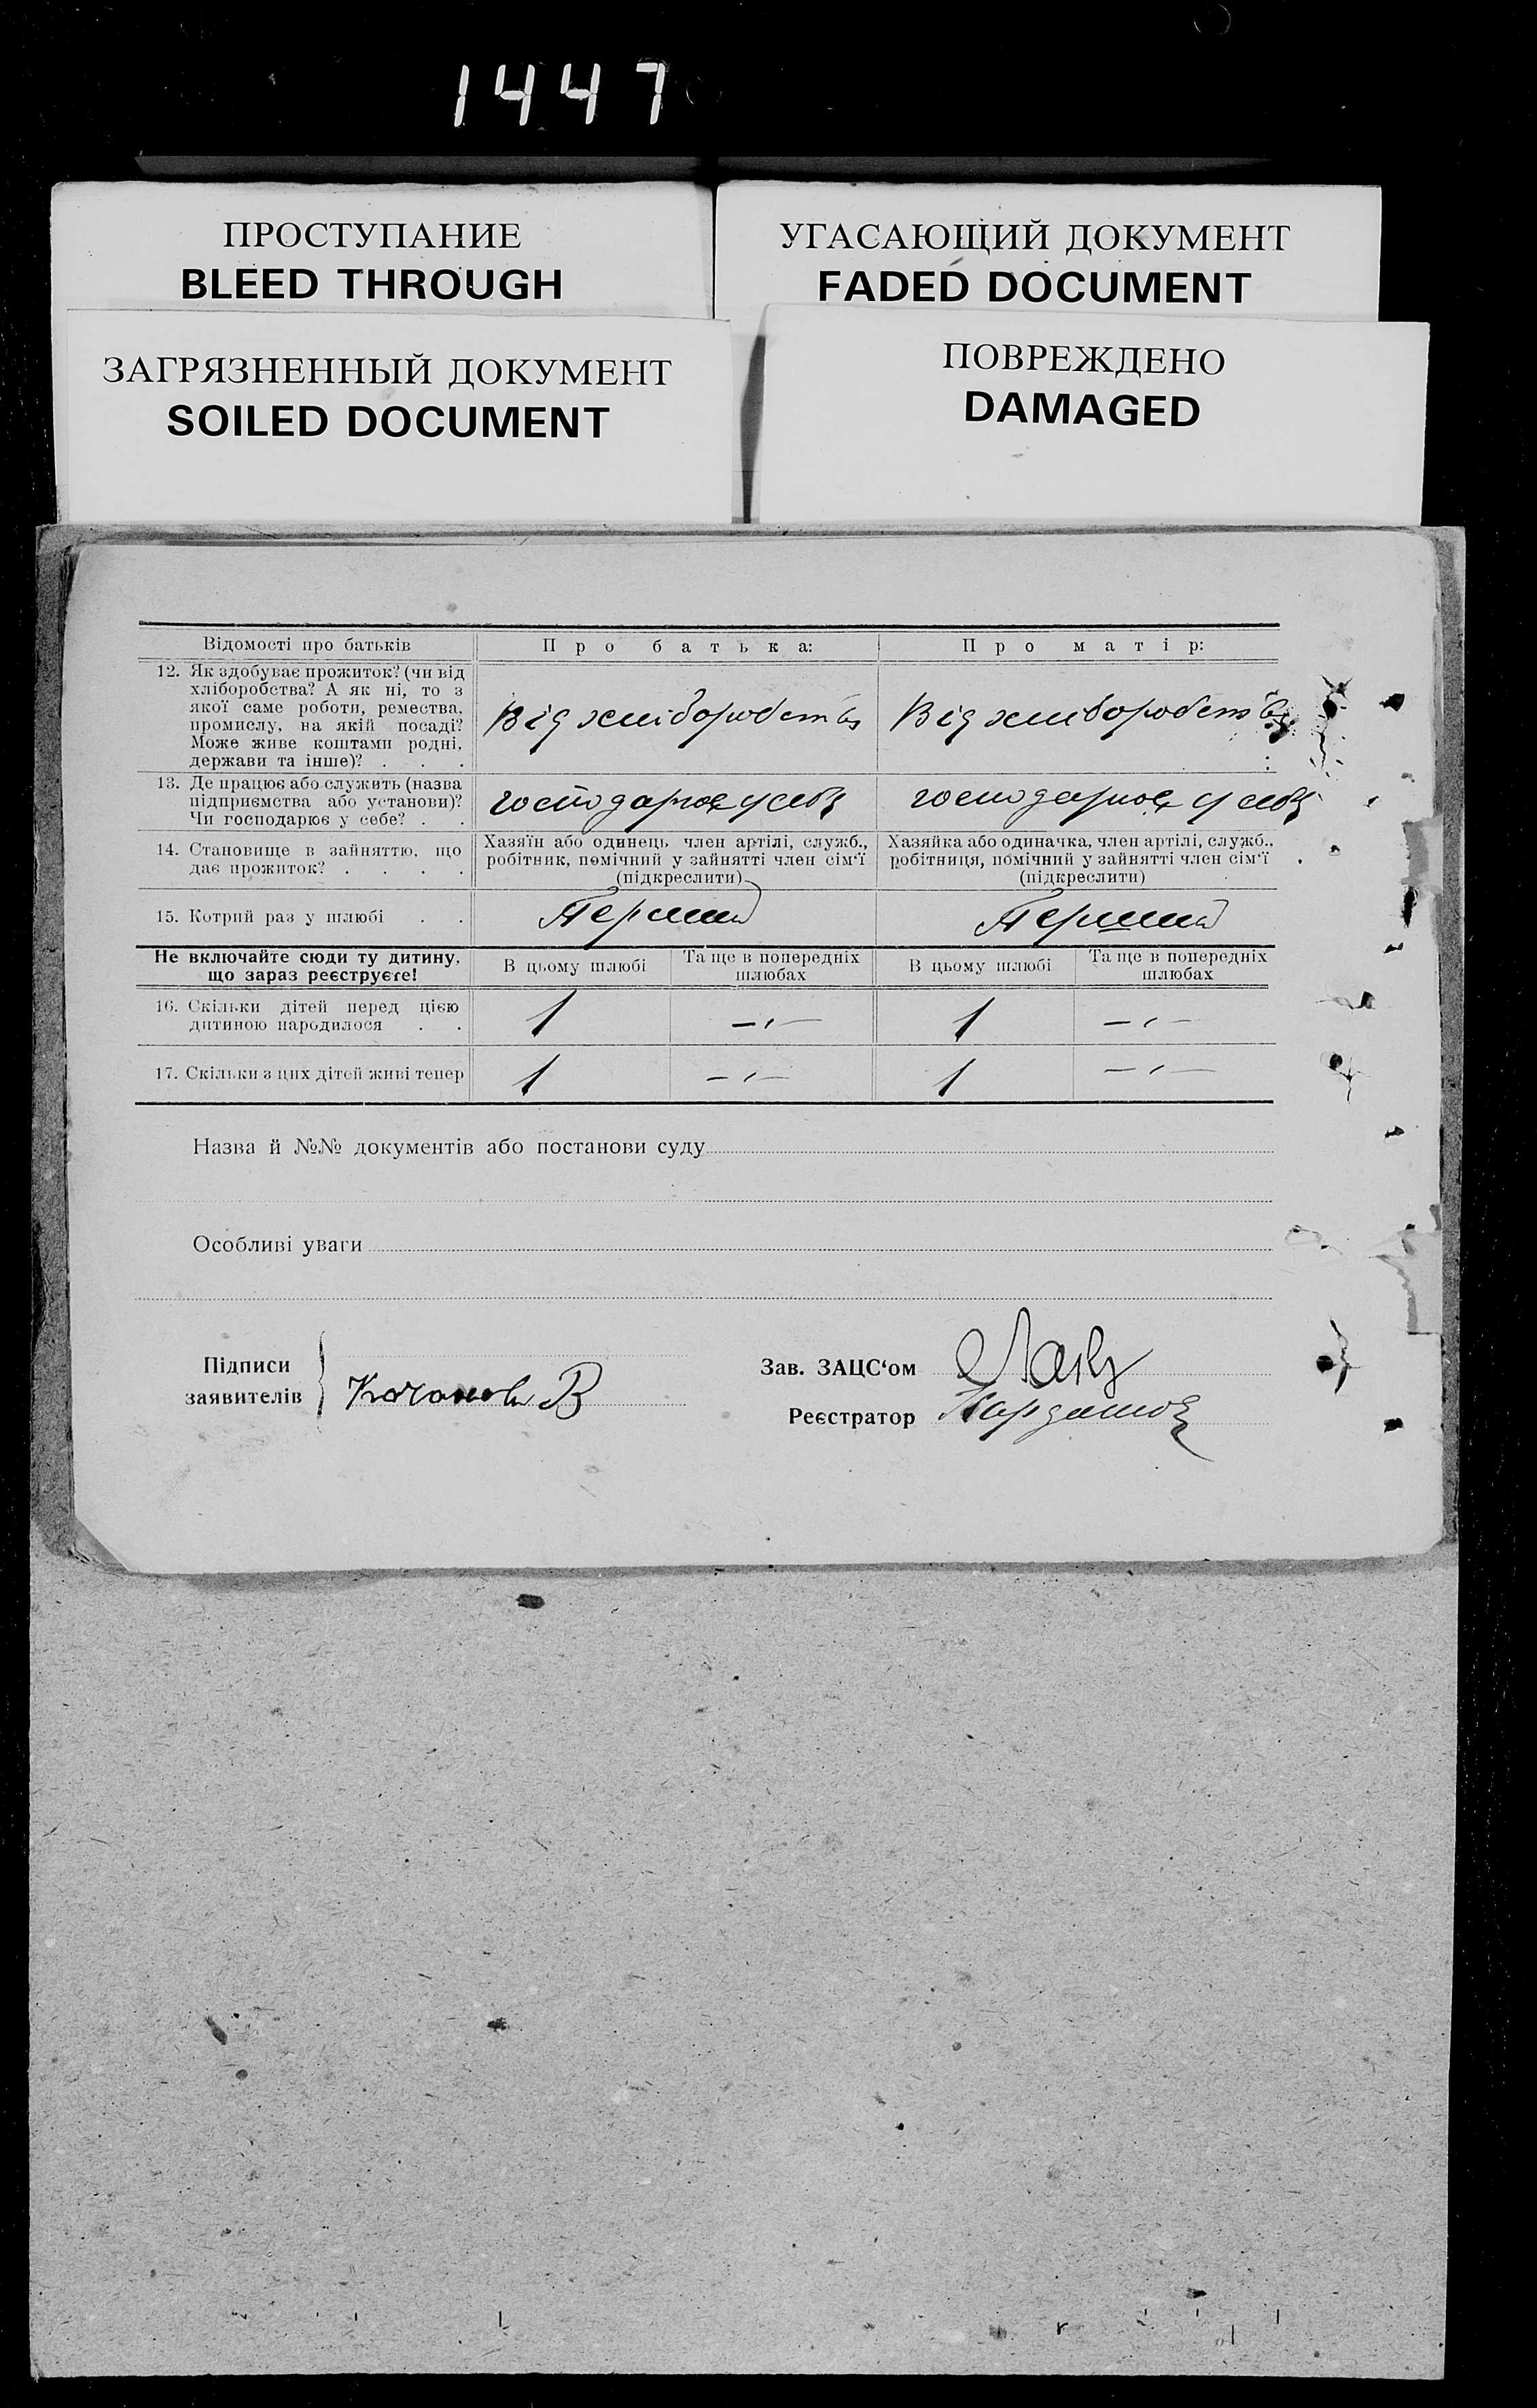 1447
ПРОСТУПАНИЕ
BLEED THROUGH
УГАСАЮЩИЙ ДОКУМЕНТ
FADED DOCUMENT
ЗАГРЯЗНЕННЫЙ ДОКУМЕНТ
SOILED DOCUMENT
ПОВРЕЖДЕНО
DAMAGED
Відомості про батьків
Про батька:
Про матір:
12. Як здобуває прожиток? (чи від
хліборобства? А як ні, то з
якої саме роботи, ремества,
промислу, на якій посаді?
Може живе коштами родні,
держави та інше)? . . .
Від хліборобства
Від хліборобства
13. Де працює або служить (назва
підприємства або установи)?
Чи господарює у себе? . .
господарює у себе
господарює у себе
14. Становище в зайняттю, що
дає прожиток? . . . .
Хазяїн або одинець, член артілі, служб.,
робітник, помічний у зайнятті член сім'ї
(підкреслити)
Хазяйка або одиначка, член артілі, служб.,
робітниця, помічний у зайнятті член сім'ї
(підкреслити)
15. Котрий раз у шлюбі . .
Перший
Перший
Не включайте сюди ту дитину,
що зараз реєструєте!
В цьому шлюбі
Та ще в попередніх
шлюбах
В цьому шлюбі
Та ще в попередніх
шлюбах
16. Скільки дітей перед цією
дитиною народилося . .
1
—„—
1
—„—
17. Скільки з цих дітей живі тепер
1
—„—
1
—„—
Назва й №№ документів або постанови суду
Особливі уваги
Підписи
заявителів
В
Зав. ЗАЦС'ом
Реєстратор